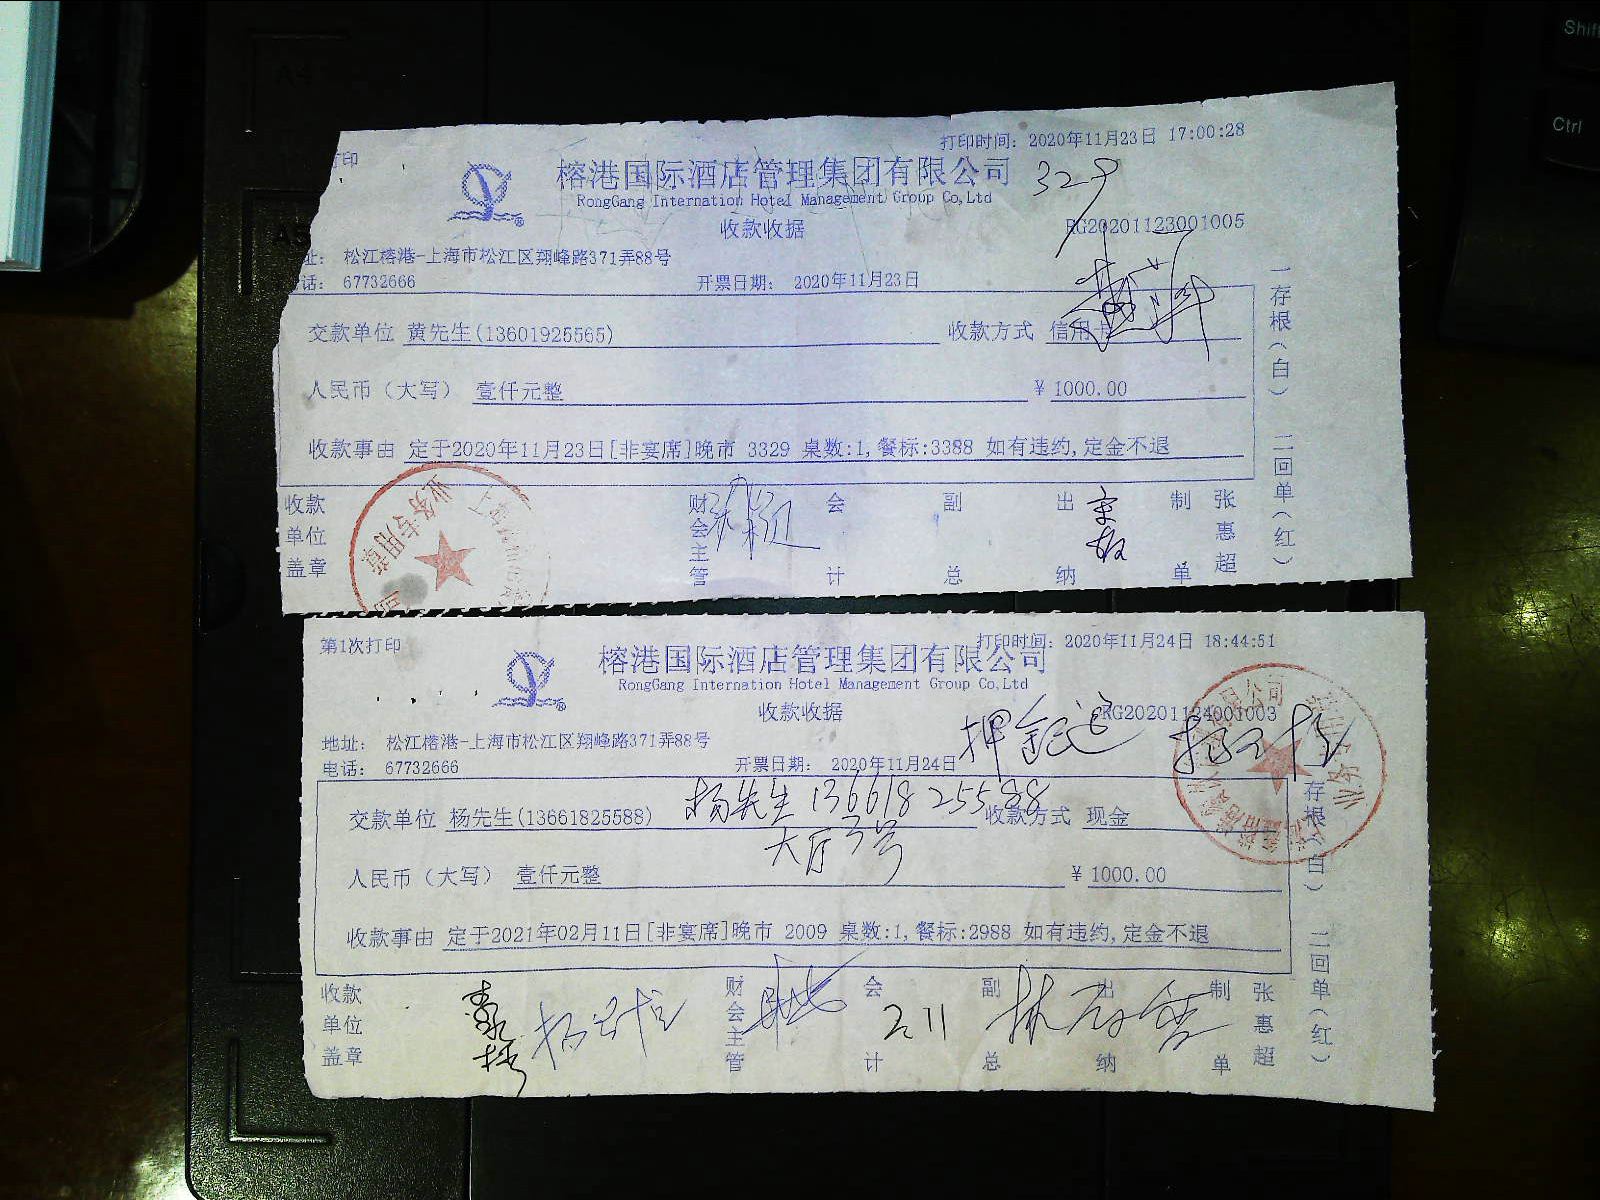 打印时间: 2020年11月23日 17:00:28
打印
榕港国际酒店管理集团有限公司
329
RongGang International Hotel Management Group Co,Ltd
收款收据
RG20201123001005
址: 松江榕港-上海市松江区翔峰路371弄88号
话: 67732666
开票日期: 2020年11月23日
交款单位 黄先生(13601925565) 收款方式 信用卡
人民币(大写) 壹仟元整 ¥ 1000.00
收款事由 定于2020年11月23日[非宴席]晚市 3329 桌数:1,餐标:3388 如有违约,定金不退
收款单位盖章 财会主管 会计 副总 出纳 制单 张惠超
一存根(白) 二回单(红)
业务专用章
第1次打印
打印时间: 2020年11月24日 18:44:51
榕港国际酒店管理集团有限公司
RongGang International Hotel Management Group Co,Ltd
收款收据
RG20201124001003
押金已退
地址: 松江榕港-上海市松江区翔峰路371弄88号
电话: 67732666
开票日期: 2020年11月24日
杨先生 13661825588
交款单位 杨先生(13661825588) 收款方式 现金
大厅3号
人民币(大写) 壹仟元整 ¥ 1000.00
收款事由 定于2021年02月11日[非宴席]晚市 2009 桌数:1,餐标:2988 如有违约,定金不退
收款单位盖章 财会主管 会计 2.11 副总 出纳 制单 张惠超
存根(白) 二回单(红)
A4
Shift
Ctrl